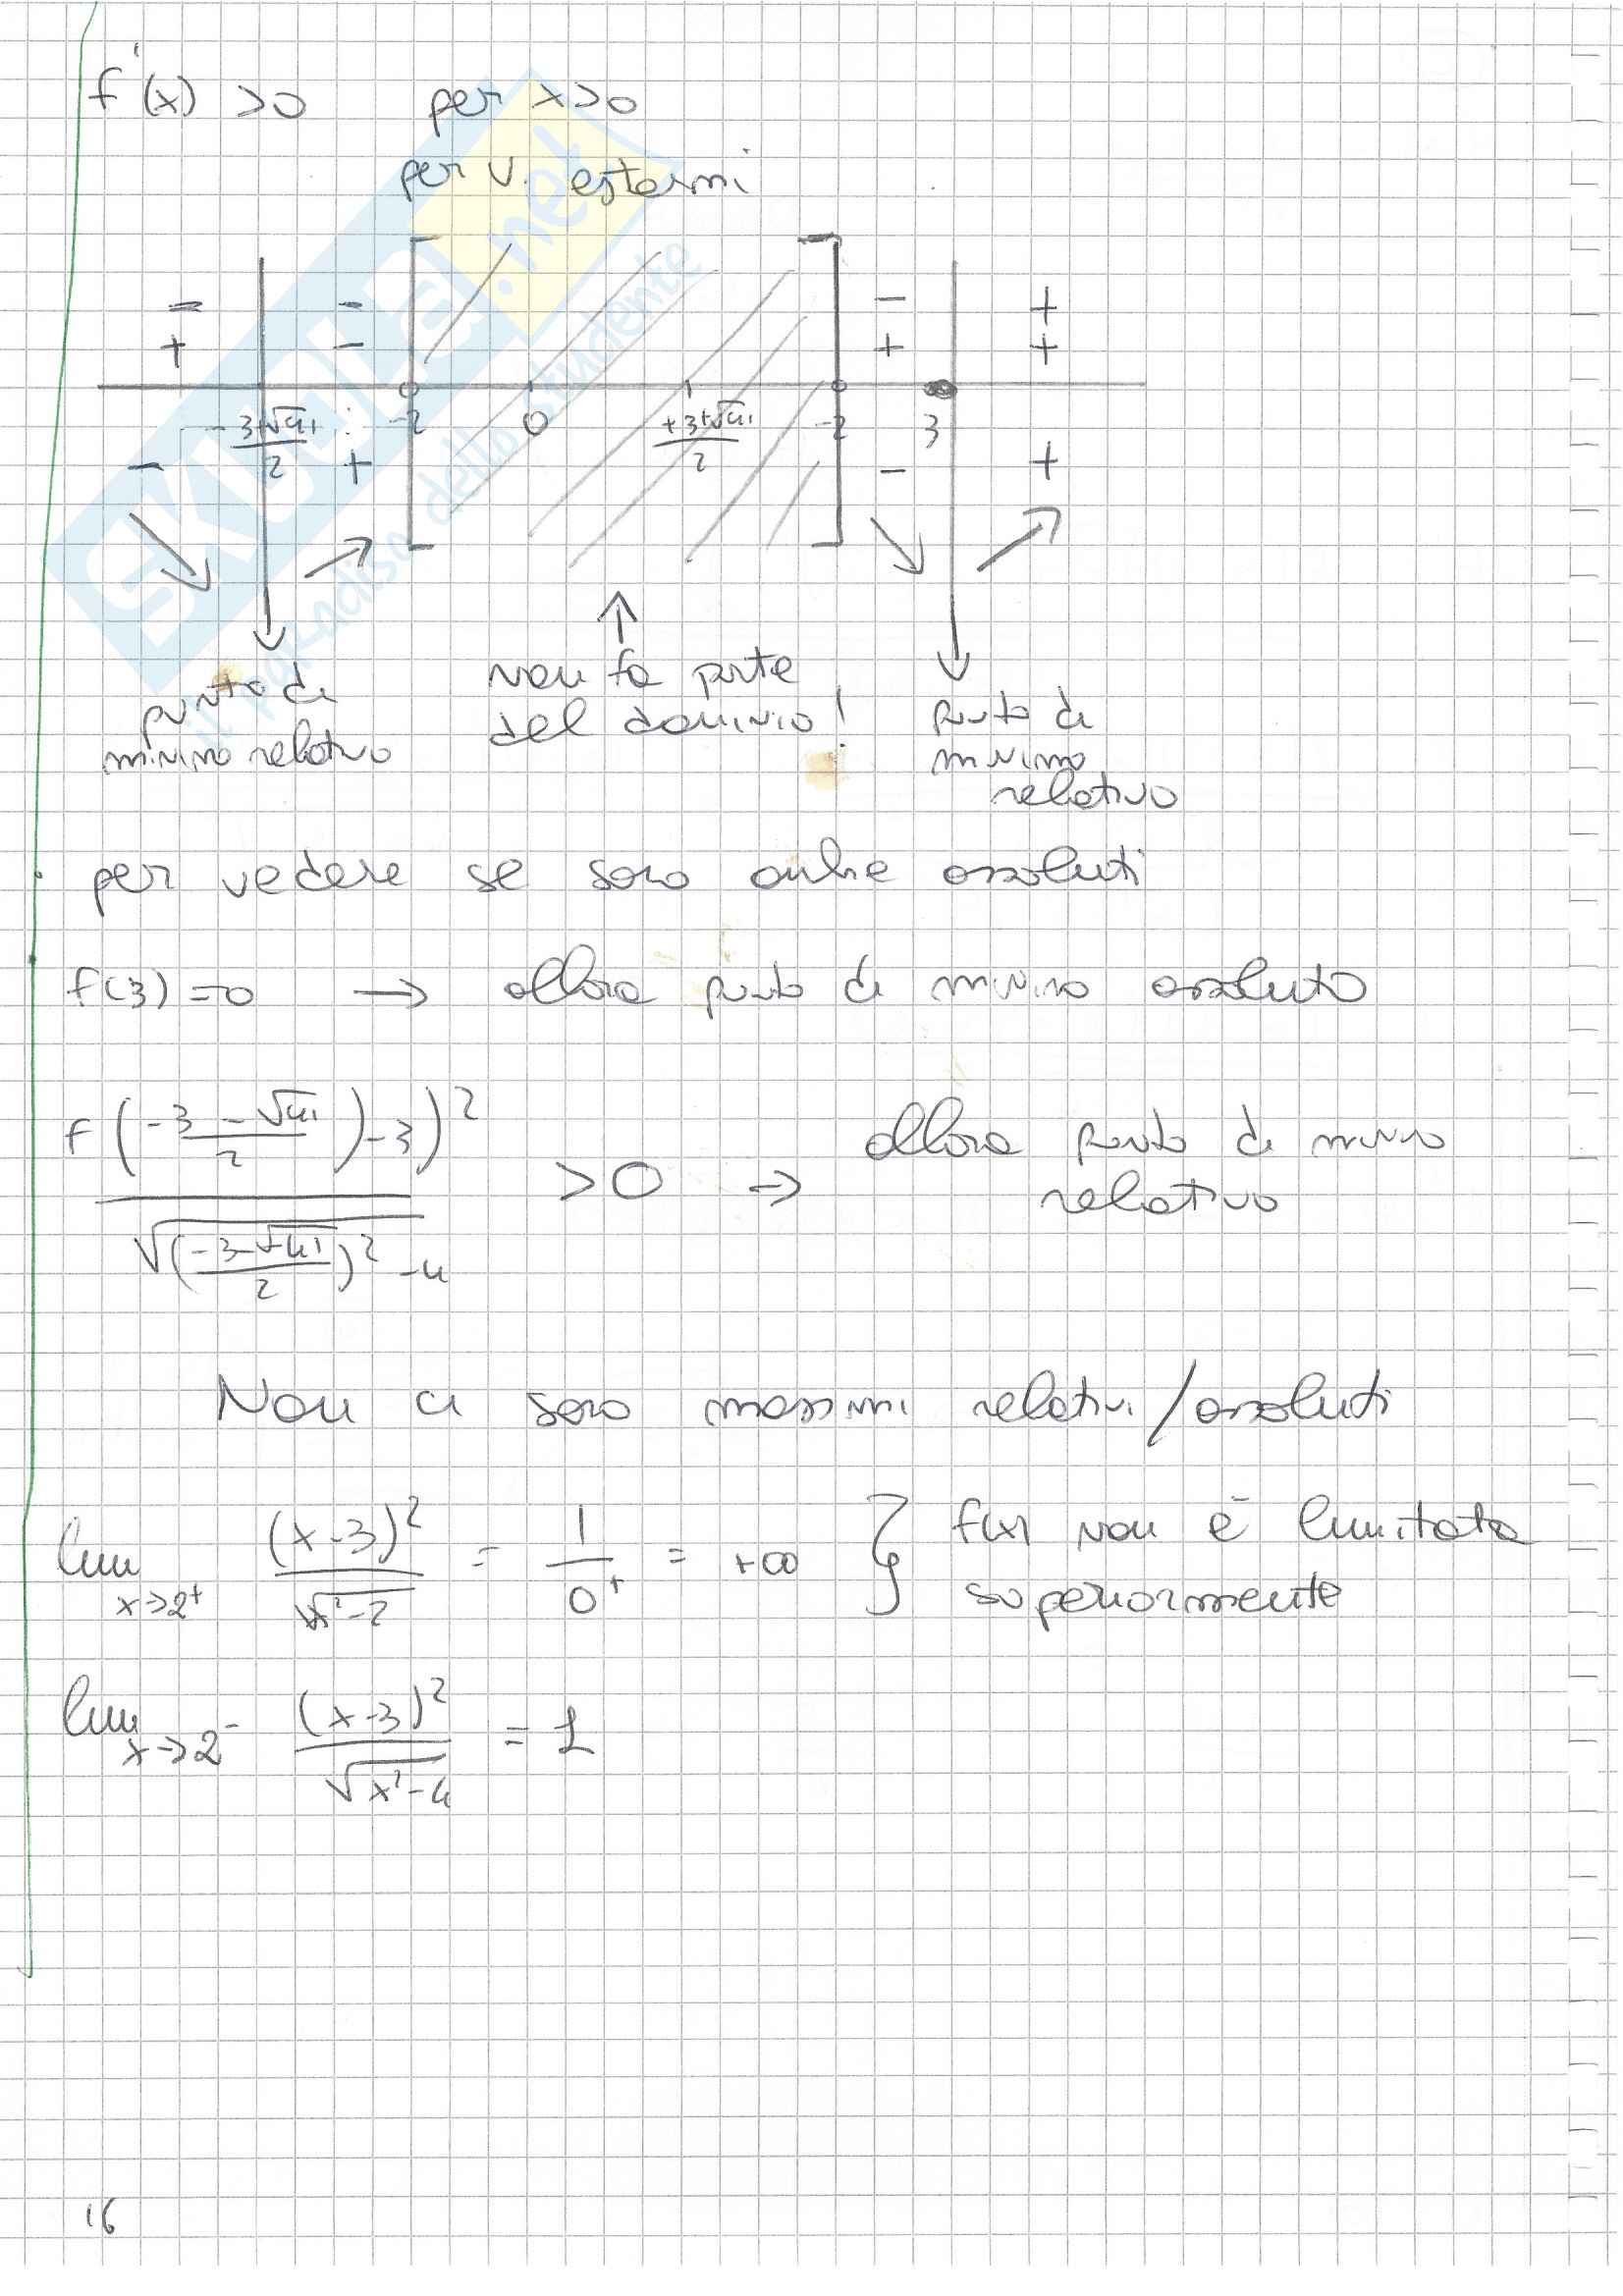 f'(x) >0 per x>0
per v. esterni
= - - +
+ - + +
-3+√41/2 -2 0 +3+√41/2 -2 3
- + - +
punto di minimo relativo
non fa parte del dominio!
punto di minimo relativo
per vedere se sono anche assoluti
f(3)=0 → allora punto di minimo assoluto
f((-3-√41)/2)-3)² / √((-3-√41)/2)²-4 >0 → allora punto di minimo relativo
Non ci sono massimi relativi/assoluti
lim x→2⁺ (x-3)²/√x²-2 = 1/0⁺ = +∞ } f(x) non è limitata superiormente
lim x→2⁻ (x-3)²/√x²-4 = 1
16
SKUOLA.net
il paradiso dello studente